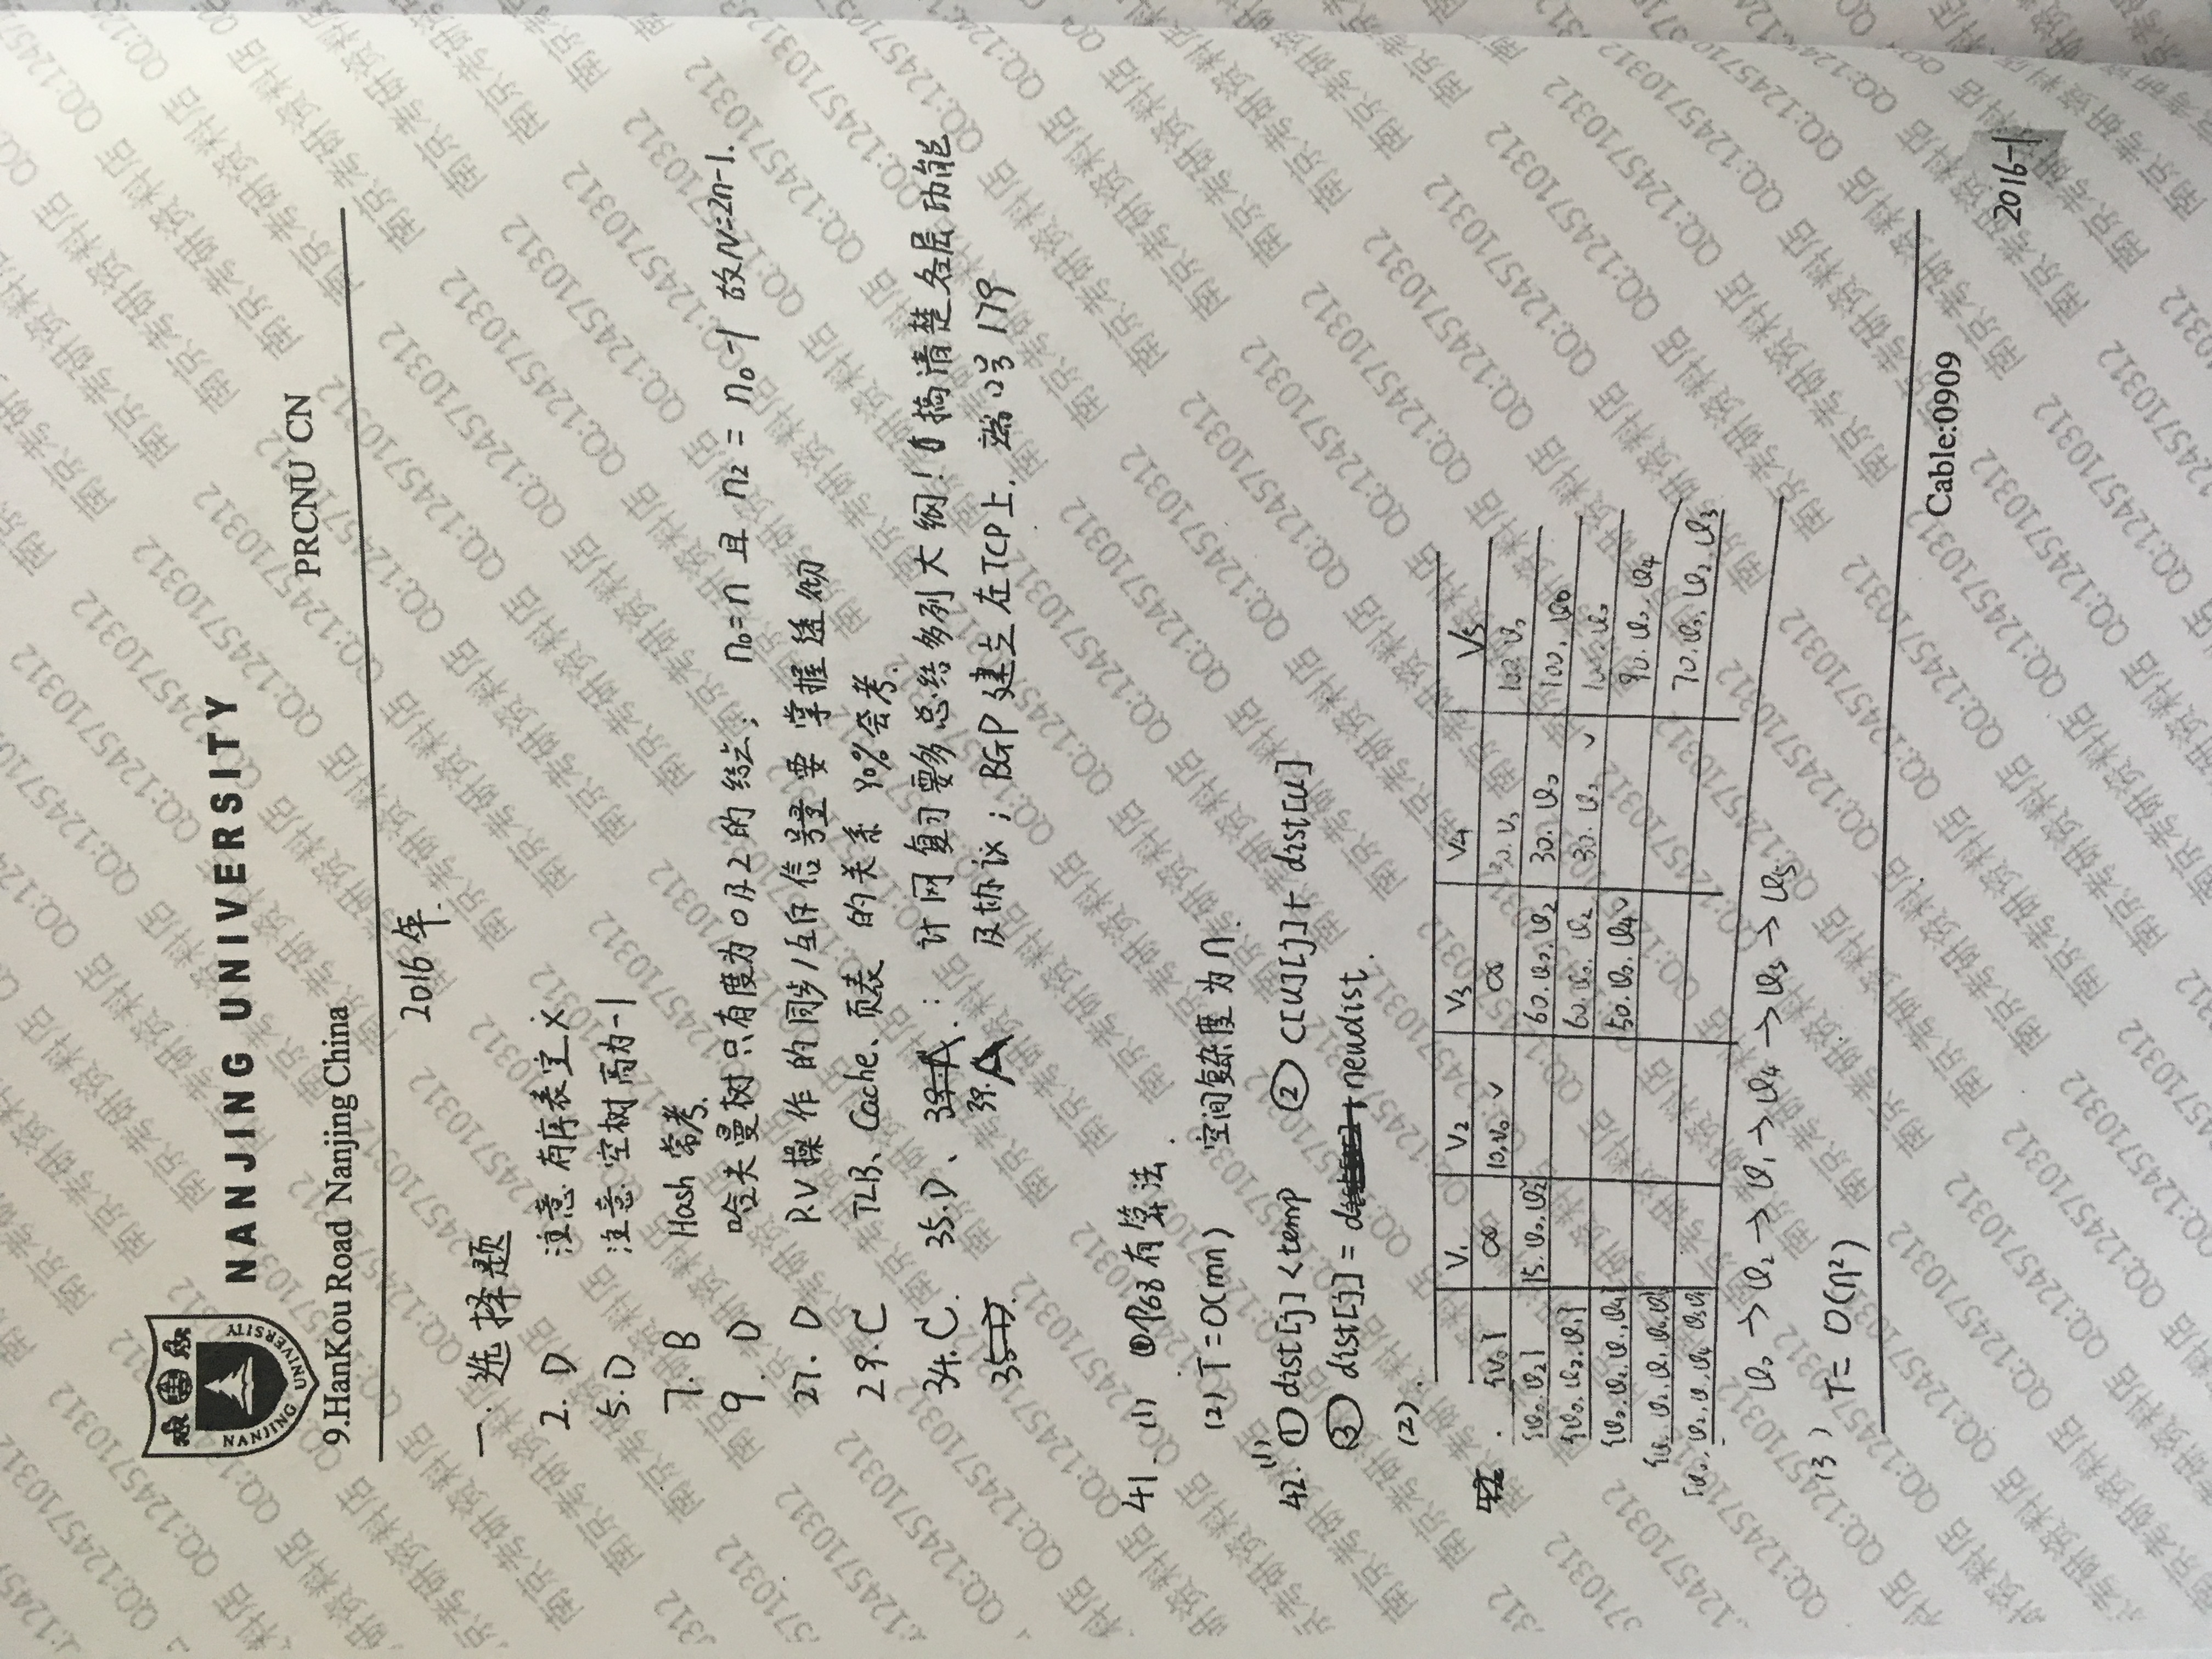 NANJING UNIVERSITY
NANJING UNIVERSITY
PRCNU CN
9.HanKou Road Nanjing China
2016年.
一.选择题
2. D 注意 有序表定义
5. D 注意 空树高为-1
7. B Hash 常考.
9. D 哈夫曼树只有度为0及2的结点; n₀=n 且 n₂ = n₀-1 故N=2n-1.
27. D P.V操作的同步/互斥信号量要掌握透彻
29. C TLB、Cache、页表 的关系 90%会考.
34. C. 35. D、 39. A. : 计网复习要多总结多列大纲! 搞清楚各层功能
35. D. 39. A 及协议; BGP建立在TCP上. 端口号179
41. (1) P68有算法.
(2) T=O(mn) 空间复杂度为n.
42. (1) ① dist[j] < temp ② C[u][j]+ dist[u]
③ dist[j] = newdist.
(2).
V₁ V₂ V₃ V₄ V₅
42. {v₀} ∞ 10.v₀ ✓ ∞ 30.v₀ 100.v₀
{v₀.v₂} 15.v₀.v₂ ✓ 60.v₀.v₂ 30.v₀ 100.v₀
{v₀.v₂.v₁} 60.v₀.v₂ 30.v₀ ✓ 100.v₀
{v₀.v₂.v₁.v₄} 50.v₀.v₄ ✓ 90.v₀.v₄
70.v₀.v₂.v₃
v₀ → v₂ → v₁ → v₄ → v₃ → v₅
(3) T= O(n²)
Cable:0909
2016-1
南京考研资料店 QQ:1245710312